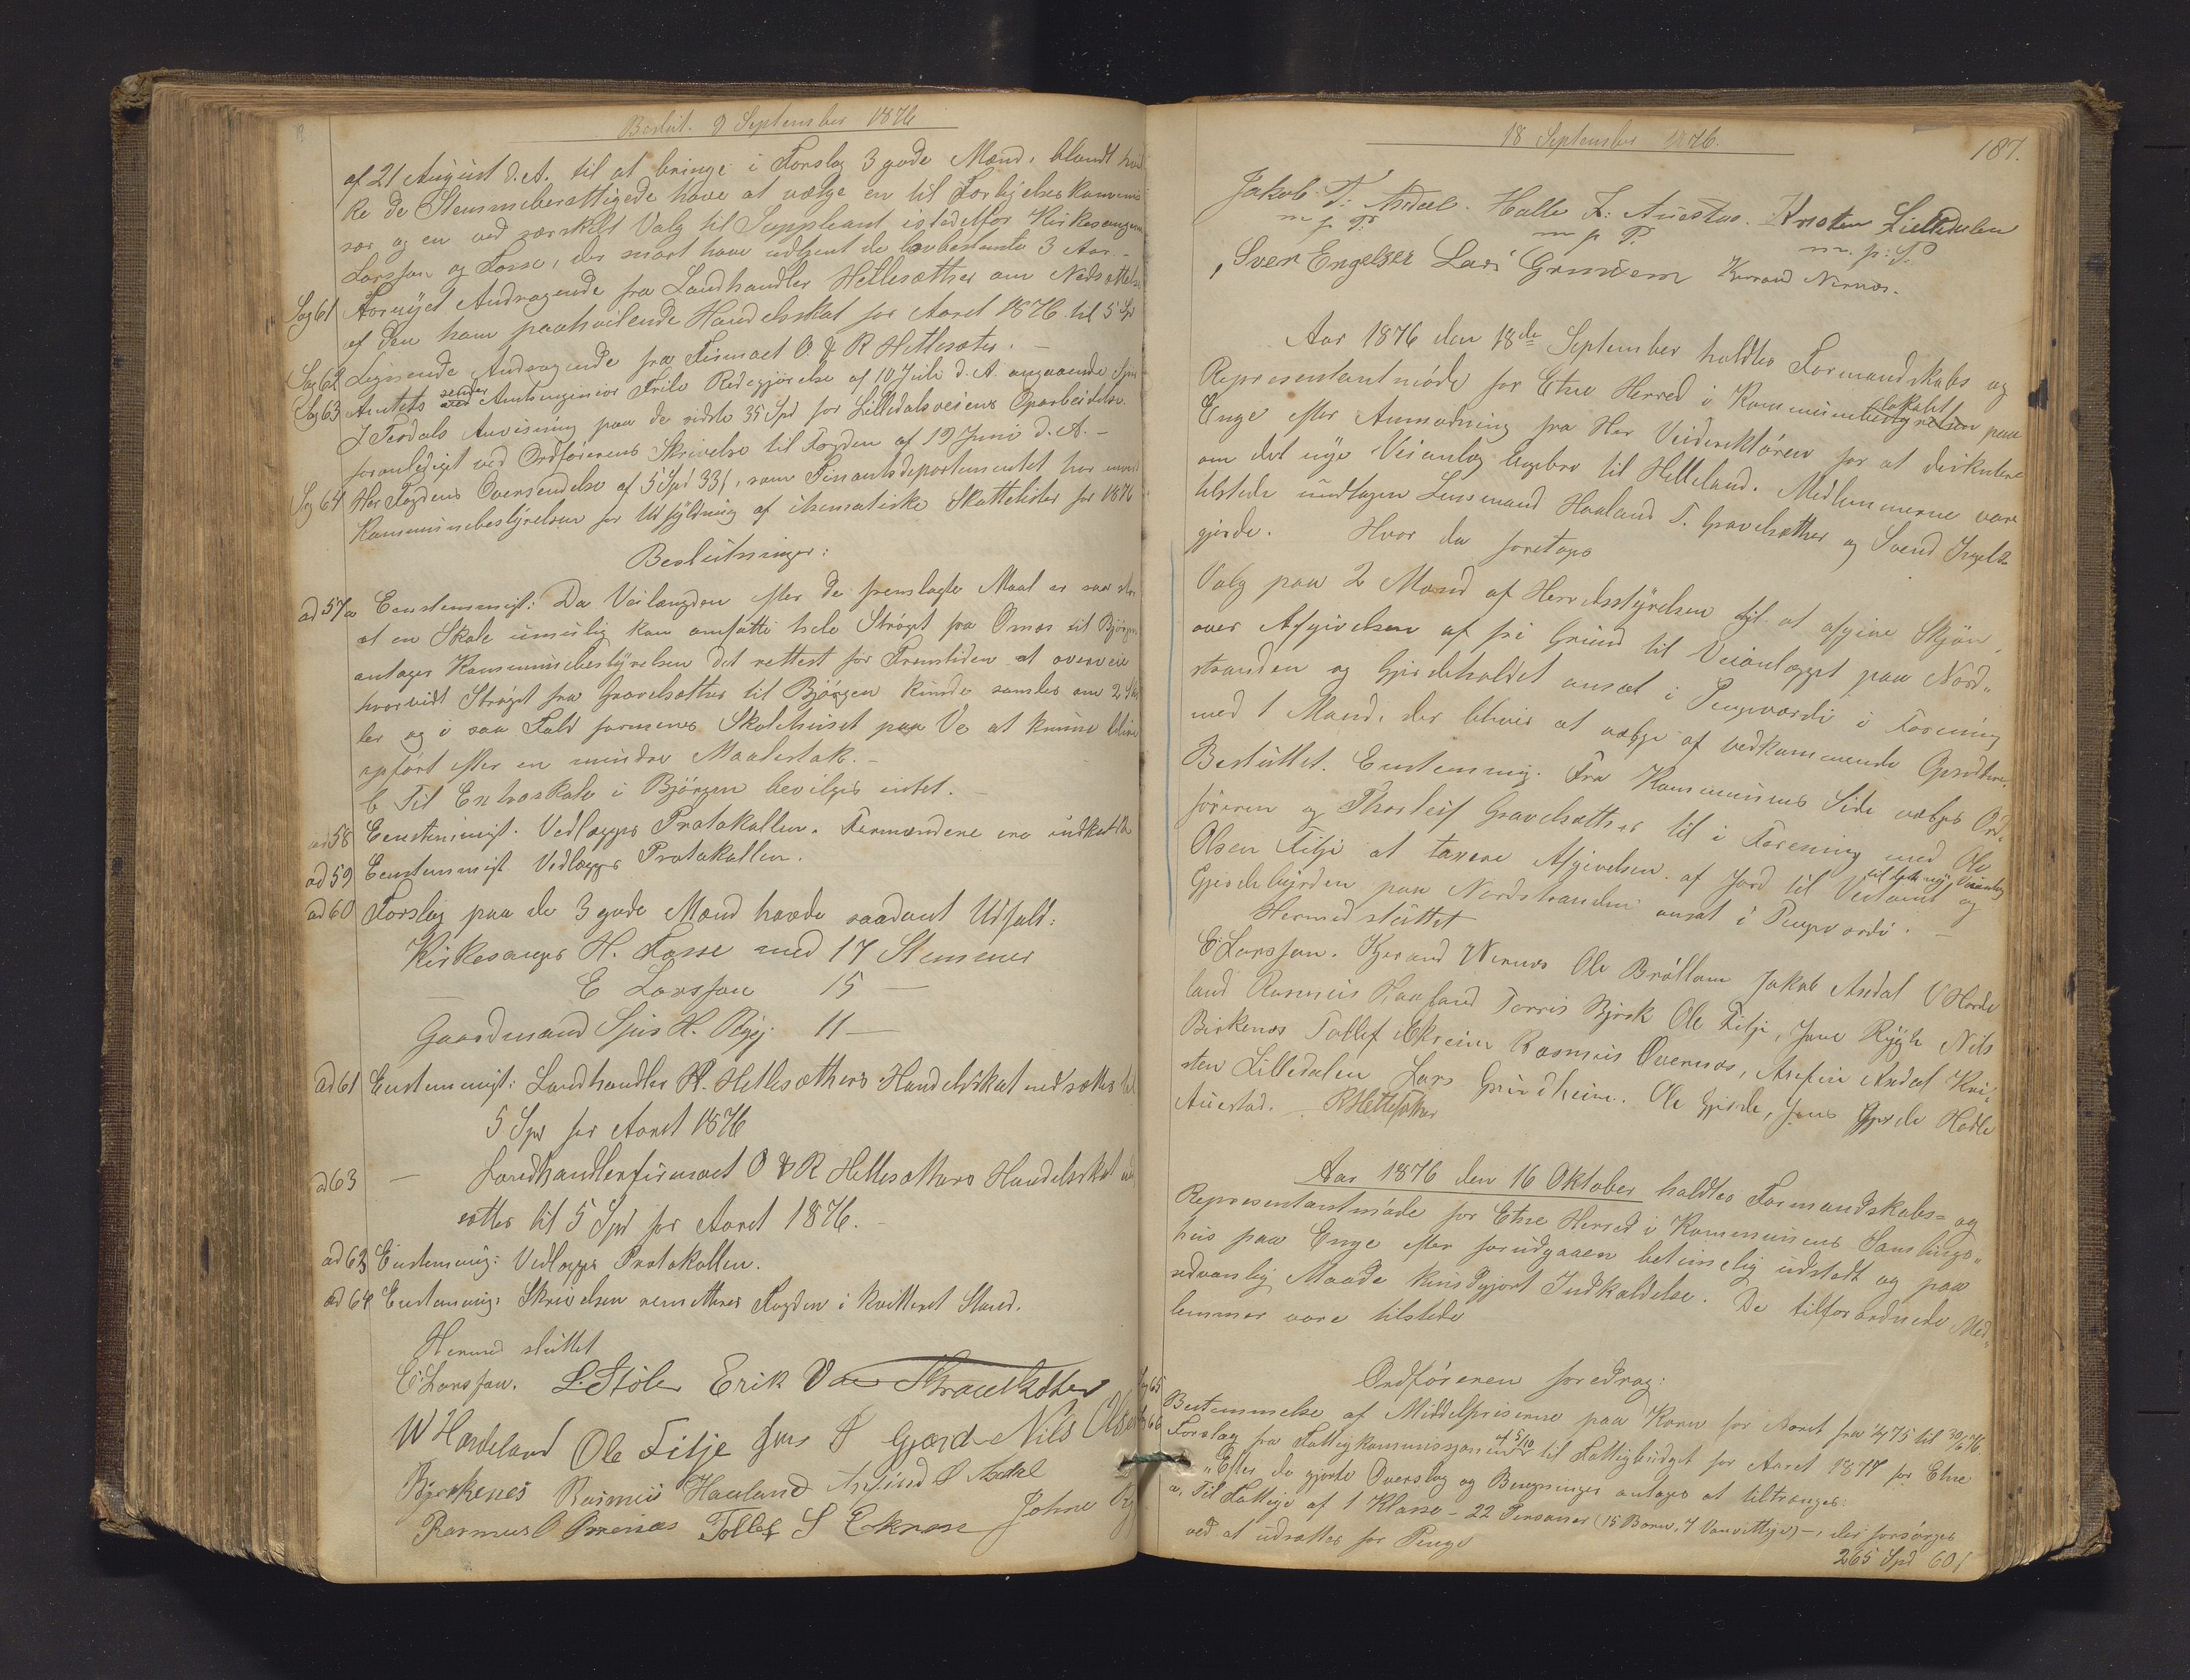 Beslut. 9 September 1876
af 21 August d.A. til at bringe i Forslag 3 gode Mænd, blandt hvil
ke de Stemmeberettigede have at vælge en til Forligelseskommis
sær og en ved særskilt Valg til Suppleant istedetfor Kirkesanger
Larsson og Fosse, der snart have udtjent de lovbestemte 3 Aar.-
Sag 61 Fornyet Andragende fra Landhandler Hettesæther om Nedsættelse
af den ham paahvilende Handelsskat for Aaret 1876 til 5 Spd
Sag 62 Lignende Andragende fra Firmaet O. & R Hettesæter.-
Sag 63 Amtets sender Amtsingeniør Friis Redegjørelse af 10 Juli d.A. angaaende
J Tesdals Anvisning paa de sidste 35 Spd for Litledalsveiens Oparbeidelse
foranlediget ved Ordførerens Skrivelse til Fogden af 19 Juni d.A.-
Sag 64 Her Fogdens Oversendelse af 5 Spd 33 s, som Finantsdepartementet har
Kommunebestyrelsen for Udfyldning af skematiske Skattelister for 1876
Beslutninger:
ad 57 a Eenstemmigt: Da Veilængden efter de fremlagte Maal er saa stor
at en Skole umulig kan omfatte hele Strøget fra Ornes til Bjørgen
antager Kommunebestyrelsen det rettest for Fremtiden at overveie
hvorvidt Strøget fra Gravelsæther til Bjørgen kunde samles om 2 Sko
ler og i saa Fald formenes Skolehuset paa Ve at kunne blive
opført efter en mindre Maalestok.-
b Til Extraskole i Bjørgen bevilges intet.-
ad 58 Eenstemmigt. Vedlægges Protokollen. Formændene ere indkaldte
ad 59 Eenstemmigt Vedlægges Protokollen.
ad 60 Forslag paa de 3 gode Mænd havde saadant Udfald:
Kirkesanger H. Fosse med 17 Stemmer
— E Larsson 15 —
Gaardmand H. 11 —
ad 61 Eenstemmigt: Landhandler H. Hettesæthers Handelsskat nedsættes til
5 Spd for Aaret 1876
ad 63 — Landhandlerfirmaet O & R Hettesæthers Handelsskat ned
sættes til 5 Spd for Aaret 1876.-
ad 63 Eenstemmig: Vedlægges Protokollen.
ad 64 Eenstemmig: Skrivelsen remitteres Fogden i kvitteret Stand.
Hermed sluttet
E Larsson. L. Støle Erik Vae
W Hardeland Ole Fitje Jens Gjerde Nils Olsen
Bjerkenes Rasmus Haaland Arfind Asdal
Rasmus Øvrenæs Tollef S Ekrem Johne
18 September 1876.
187.
Jakob T. Asdal. Halle Z. Austad. Kristen Litledalen
m p P. m p P. m. p. P.
Sven Engelsen Lars Grindem Nernæs.
Aar 1876 den 18de September holdtes Formandskabs og
Representantmøde for Etne Herred i Kommunelokalet paa
Enge efter Anmodning fra Her Veidirektøren for at diskutere
om det nye Veianlæg Ungebro til Helleland. Medlemmerne vare
tilstede undtagen Lensmand Haaland T. Gravelsæther og Svend
gjerde. Hvor da foretoges
Valg paa 2 Mænd af Herredsstyrelsen til at afgive Skjøn
over Afgivelsen af fri Grund til Veianlægget paa Nord"
stranden og Gjerdeholdet ansat i Pengeværdi i Forening
med 1 Mand, der bliver at vælge af vedkommende
Besluttet. Eenstemmig. Fra Kommunens Side vælges Ord"
føreren og Thorleif Gravelsæther til i Forening med Ole
Olsen Fitje at taxere Afgivelsen af Jord til Veitomt og
til dette nye Veianlæg
Gjerdebyrden paa Nordstranden ansat i Pengeværdi.-
Hermed sluttet
E Larsson. Kjerand Nernæs Ole Brattam Jakob Asdal V Harde
land Rasmus Haaland Torris Bjørk Ole Fitje, Jone Rygh Nils
Birkenes Tollef Ekreim Rasmus Øvernæs, Arfin Asdal Kri"
sten Litledalen Lars Grindheim. Ole Gjerde, Jens Gjerde Halle
Austad. RHettesæther
Aar 1876 den 16 Oktober holdtes Formandskabs- og
Representantmøde for Etne Herred i Kommunens Samlings"
hus paa Enge efter forudgaaen betimelig udstedt og paa
sedvanlig Maade kundgjort Indkaldelse. De tilforordnede Med"
lemmer vare tilstede
Ordføreren foredrog:
Sag 65 Bestemmelse af Middelpriserne paa Korn for Aaret fra 1/7 75 til 30/6 76.
66 Forslag fra Fattigkommissionen af 5/10 til Fattigbudget for Aaret 1877 for Etne
"Efter de gjorte Overslag og Beregninger antages at tiltrænges:
a, Til Fattige af 1 Klasse - 22 Personer (15 Børn, 7 Vanvittige)-, der forsørges
ved at udsættes for Penge
265 Spd 60 s